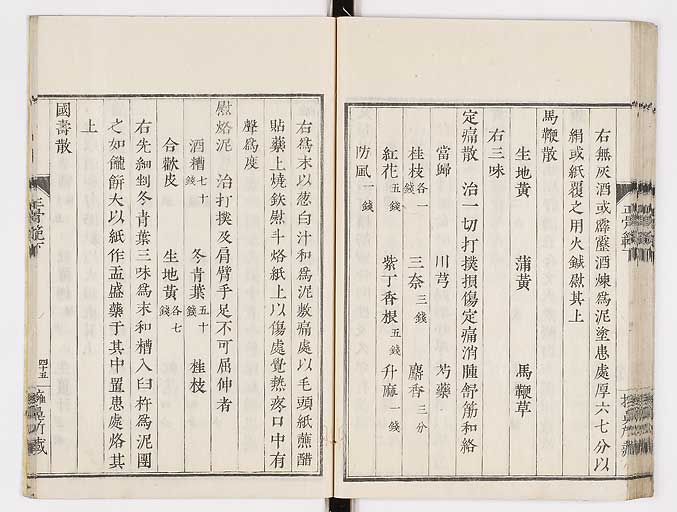 右無灰酒或霹靂酒煉爲泥塗患處厚六七分以
絹或紙覆之用火鍼慰其上
馬鞭散
生地黃　蒲黃　馬鞭草
右三味
定痛散　治一切打撲損傷定痛消腫舒筋和絡
當歸　川芎　芍藥
桂枝各一錢　三奈三錢　麝香三分
紅花五錢　紫丁香根五錢　升麻一錢
防風一錢
右爲末以葱白汁和爲泥敷痛處以毛頭紙蘸醋
貼藥上燒鉄慰斗烙紙上以傷處覺熱疼口中有
聲爲度
慰烙泥　治打撲及肩臂手足不可屈伸者
酒糟七十錢　冬青葉五十錢　桂枝
合歡皮　生地黃各七錢
右先細剉冬青葉三味爲末和糟入臼杵爲泥團
之如餅大以紙作盂盛藥于其中置患處烙其
上
國壽散
正骨範下
四十五